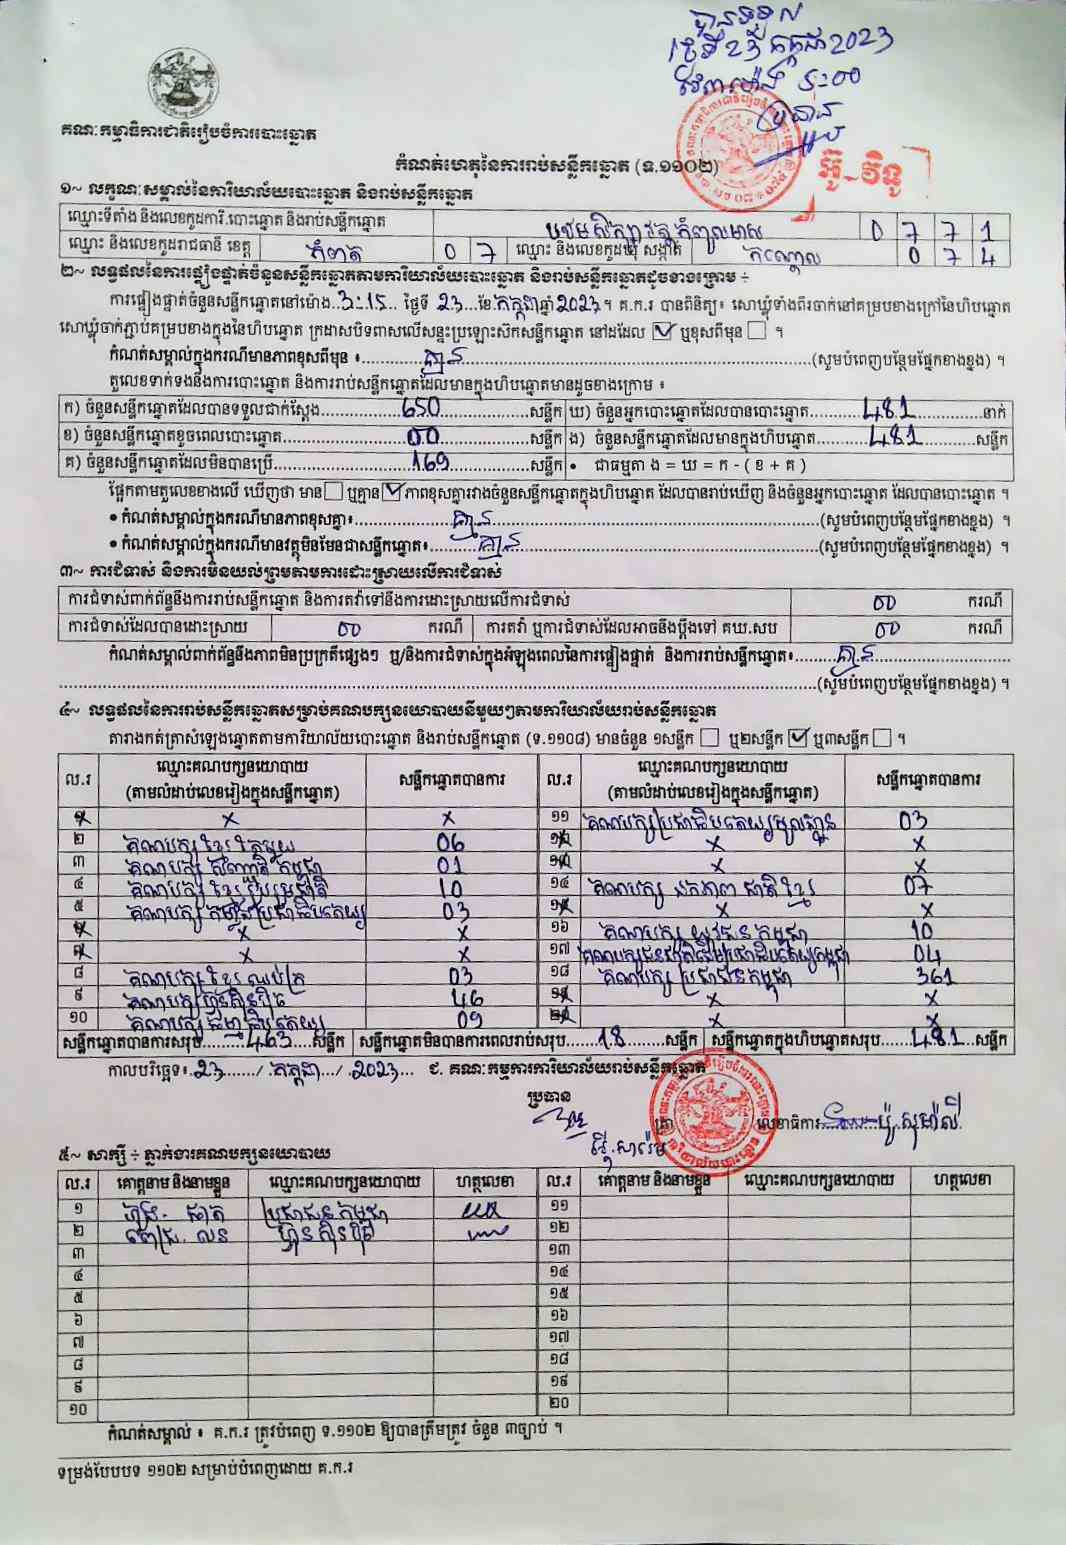 បានទទួល
ថ្ងៃទី 23 កក្កដា 2023
វេលាម៉ោង 5:00
ប្រធាន
គណៈកម្មាធិការជាតិរៀបចំការបោះឆ្នោត
កំណត់ហេតុនៃការរាប់សន្លឹកឆ្នោត (ទ.១១០២)
១~ លក្ខណៈសម្គាល់នៃការិយាល័យបោះឆ្នោត និងរាប់សន្លឹកឆ្នោត
ឈ្មោះទីតាំង និងលេខកូដការិ.បោះឆ្នោត និងរាប់សន្លឹកឆ្នោត បឋមសិក្សាវត្តកំពូលមាស 0 7 7 1
ឈ្មោះ និងលេខកូដរាជធានី ខេត្ត កំពត 0 7 ឈ្មោះ និងលេខកូដឃុំ សង្កាត់ 0 7 4
២~ លទ្ធផលនៃការផ្ទៀងផ្ទាត់ចំនួនសន្លឹកឆ្នោតតាមការិយាល័យបោះឆ្នោត និងរាប់សន្លឹកឆ្នោតដូចខាងក្រោម ÷
ការផ្ទៀងផ្ទាត់ចំនួនសន្លឹកឆ្នោតនៅម៉ោង..3:15.. ថ្ងៃទី 23 ខែ កក្កដា ឆ្នាំ 2023។ គ.ក.រ បានពិនិត្យ៖ សោឃ្លុំទាំងពីរចាក់នៅគម្របខាងក្រៅនៃហិបឆ្នោត
សោឃ្លុំចាក់ភ្ជាប់គម្របខាងក្នុងនៃហិបឆ្នោត ក្រដាសបិទពាសលើសន្ទះប្រឡោះសិកសន្លឹកឆ្នោត នៅដដែល ☑ ឬខុសពីមុន ☐ ។
កំណត់សម្គាល់ក្នុងករណីមានភាពខុសពីមុន ៖ គ្មាន (សូមបំពេញបន្ថែមផ្នែកខាងខ្នង) ។
តួលេខទាក់ទងនឹងការបោះឆ្នោត និងការរាប់សន្លឹកឆ្នោតដែលមានក្នុងហិបឆ្នោតមានដូចខាងក្រោម ៖
ក) ចំនួនសន្លឹកឆ្នោតដែលបានទទួលជាក់ស្តែង 650 សន្លឹក ឃ) ចំនួនអ្នកបោះឆ្នោតដែលបានបោះឆ្នោត 481 នាក់
ខ) ចំនួនសន្លឹកឆ្នោតខូចពេលបោះឆ្នោត 00 សន្លឹក ង) ចំនួនសន្លឹកឆ្នោតដែលមានក្នុងហិបឆ្នោត 481 សន្លឹក
គ) ចំនួនសន្លឹកឆ្នោតដែលមិនបានប្រើ 169 សន្លឹក • ជាធម្មតា ង = ឃ = ក - ( ខ + គ )
ផ្អែកតាមតួលេខខាងលើ ឃើញថា មាន ☐ ឬគ្មាន ☑ ភាពខុសគ្នារវាងចំនួនសន្លឹកឆ្នោតក្នុងហិបឆ្នោត ដែលបានរាប់ឃើញ និងចំនួនអ្នកបោះឆ្នោត ដែលបានបោះឆ្នោត ។
• កំណត់សម្គាល់ក្នុងករណីមានភាពខុសគ្នា៖ គ្មាន (សូមបំពេញបន្ថែមផ្នែកខាងខ្នង) ។
• កំណត់សម្គាល់ក្នុងករណីមានវត្ថុមិនមែនជាសន្លឹកឆ្នោត៖ គ្មាន (សូមបំពេញបន្ថែមផ្នែកខាងខ្នង) ។
៣~ ការជំទាស់ និងការមិនយល់ព្រមតាមការដោះស្រាយលើការជំទាស់
ការជំទាស់ពាក់ព័ន្ធនឹងការរាប់សន្លឹកឆ្នោត និងការតវ៉ាទៅនឹងការដោះស្រាយលើការជំទាស់ 00 ករណី
ការជំទាស់ដែលបានដោះស្រាយ 00 ករណី ការតវ៉ា ឬការជំទាស់ដែលអាចនឹងប្តឹងទៅ គឃ.សប 00 ករណី
កំណត់សម្គាល់ពាក់ព័ន្ធនឹងភាពមិនប្រក្រតីផ្សេងៗ ឬ/និងការជំទាស់ក្នុងអំឡុងពេលនៃការផ្ទៀងផ្ទាត់ និងការរាប់សន្លឹកឆ្នោត៖ គ្មាន
(សូមបំពេញបន្ថែមផ្នែកខាងខ្នង) ។
៤~ លទ្ធផលនៃការរាប់សន្លឹកឆ្នោតសម្រាប់គណបក្សនយោបាយនីមួយៗតាមការិយាល័យរាប់សន្លឹកឆ្នោត
តារាងកត់ត្រាសំឡេងឆ្នោតតាមការិយាល័យបោះឆ្នោត និងរាប់សន្លឹកឆ្នោត (ទ.១១០៨) មានចំនួន ១សន្លឹក ☐ ឬ២សន្លឹក ☑ ឬ៣សន្លឹក ☐ ។
ល.រ ឈ្មោះគណបក្សនយោបាយ សន្លឹកឆ្នោតបានការ ល.រ ឈ្មោះគណបក្សនយោបាយ សន្លឹកឆ្នោតបានការ
(តាមលំដាប់លេខរៀងក្នុងសន្លឹកឆ្នោត) (តាមលំដាប់លេខរៀងក្នុងសន្លឹកឆ្នោត)
១ x x ១១ គណបក្សប្រជាធិបតេយ្យមូលដ្ឋាន 03
២ គណបក្ស ខ្មែរតែមួយ 06 ១២ x x
៣ គណបក្ស សញ្ជាតិ កម្ពុជា 01 ១៣ x x
៤ គណបក្ស ខ្មែររួបរួមជាតិ 10 ១៤ គណបក្ស ឯកភាព ជាតិ ខ្មែរ 07
៥ គណបក្ស កម្លាំងប្រជាធិបតេយ្យ 03 ១៥ x x
៦ x x ១៦ គណបក្ស យុវជន កម្ពុជា 10
៧ x x ១៧ គណបក្សជនជាតិដើមប្រជាធិបតេយ្យកម្ពុជា 04
៨ គណបក្ស ខ្មែរ ឈប់ក្រ 03 ១៨ គណបក្ស ប្រជាជនកម្ពុជា 361
៩ គណបក្សហ៊្វុនស៊ិនប៉ិច 46 ១៩ x x
១០ គណបក្ស ធម្មាធិបតេយ្យ 09 ២០ x x
សន្លឹកឆ្នោតបានការសរុប 463 សន្លឹក សន្លឹកឆ្នោតមិនបានការពេលរាប់សរុប 18 សន្លឹក សន្លឹកឆ្នោតក្នុងហិបឆ្នោតសរុប 481 សន្លឹក
កាលបរិច្ឆេទ៖ 23 / កក្កដា / 2023 ជ. គណៈកម្មការការិយាល័យរាប់សន្លឹកឆ្នោត
ប្រធាន
ត្រា លេខាធិការ ប៉ូ. សុម៉ាលី
៥~ សាក្សី ÷ ភ្នាក់ងារគណបក្សនយោបាយ
ល.រ គោត្តនាម និងនាមខ្លួន ឈ្មោះគណបក្សនយោបាយ ហត្ថលេខា ល.រ គោត្តនាម និងនាមខ្លួន ឈ្មោះគណបក្សនយោបាយ ហត្ថលេខា
១ ប្រជាជន កម្ពុជា ១១
២ ហ៊្វុនស៊ិនប៉ិច ១២
៣ ១៣
៤ ១៤
៥ ១៥
៦ ១៦
៧ ១៧
៨ ១៨
៩ ១៩
១០ ២០
កំណត់សម្គាល់ ៖ គ.ក.រ ត្រូវបំពេញ ទ.១១០២ ឱ្យបានត្រឹមត្រូវ ចំនួន ៣ច្បាប់ ។
ទម្រង់បែបបទ ១១០២ សម្រាប់បំពេញដោយ គ.ក.រ